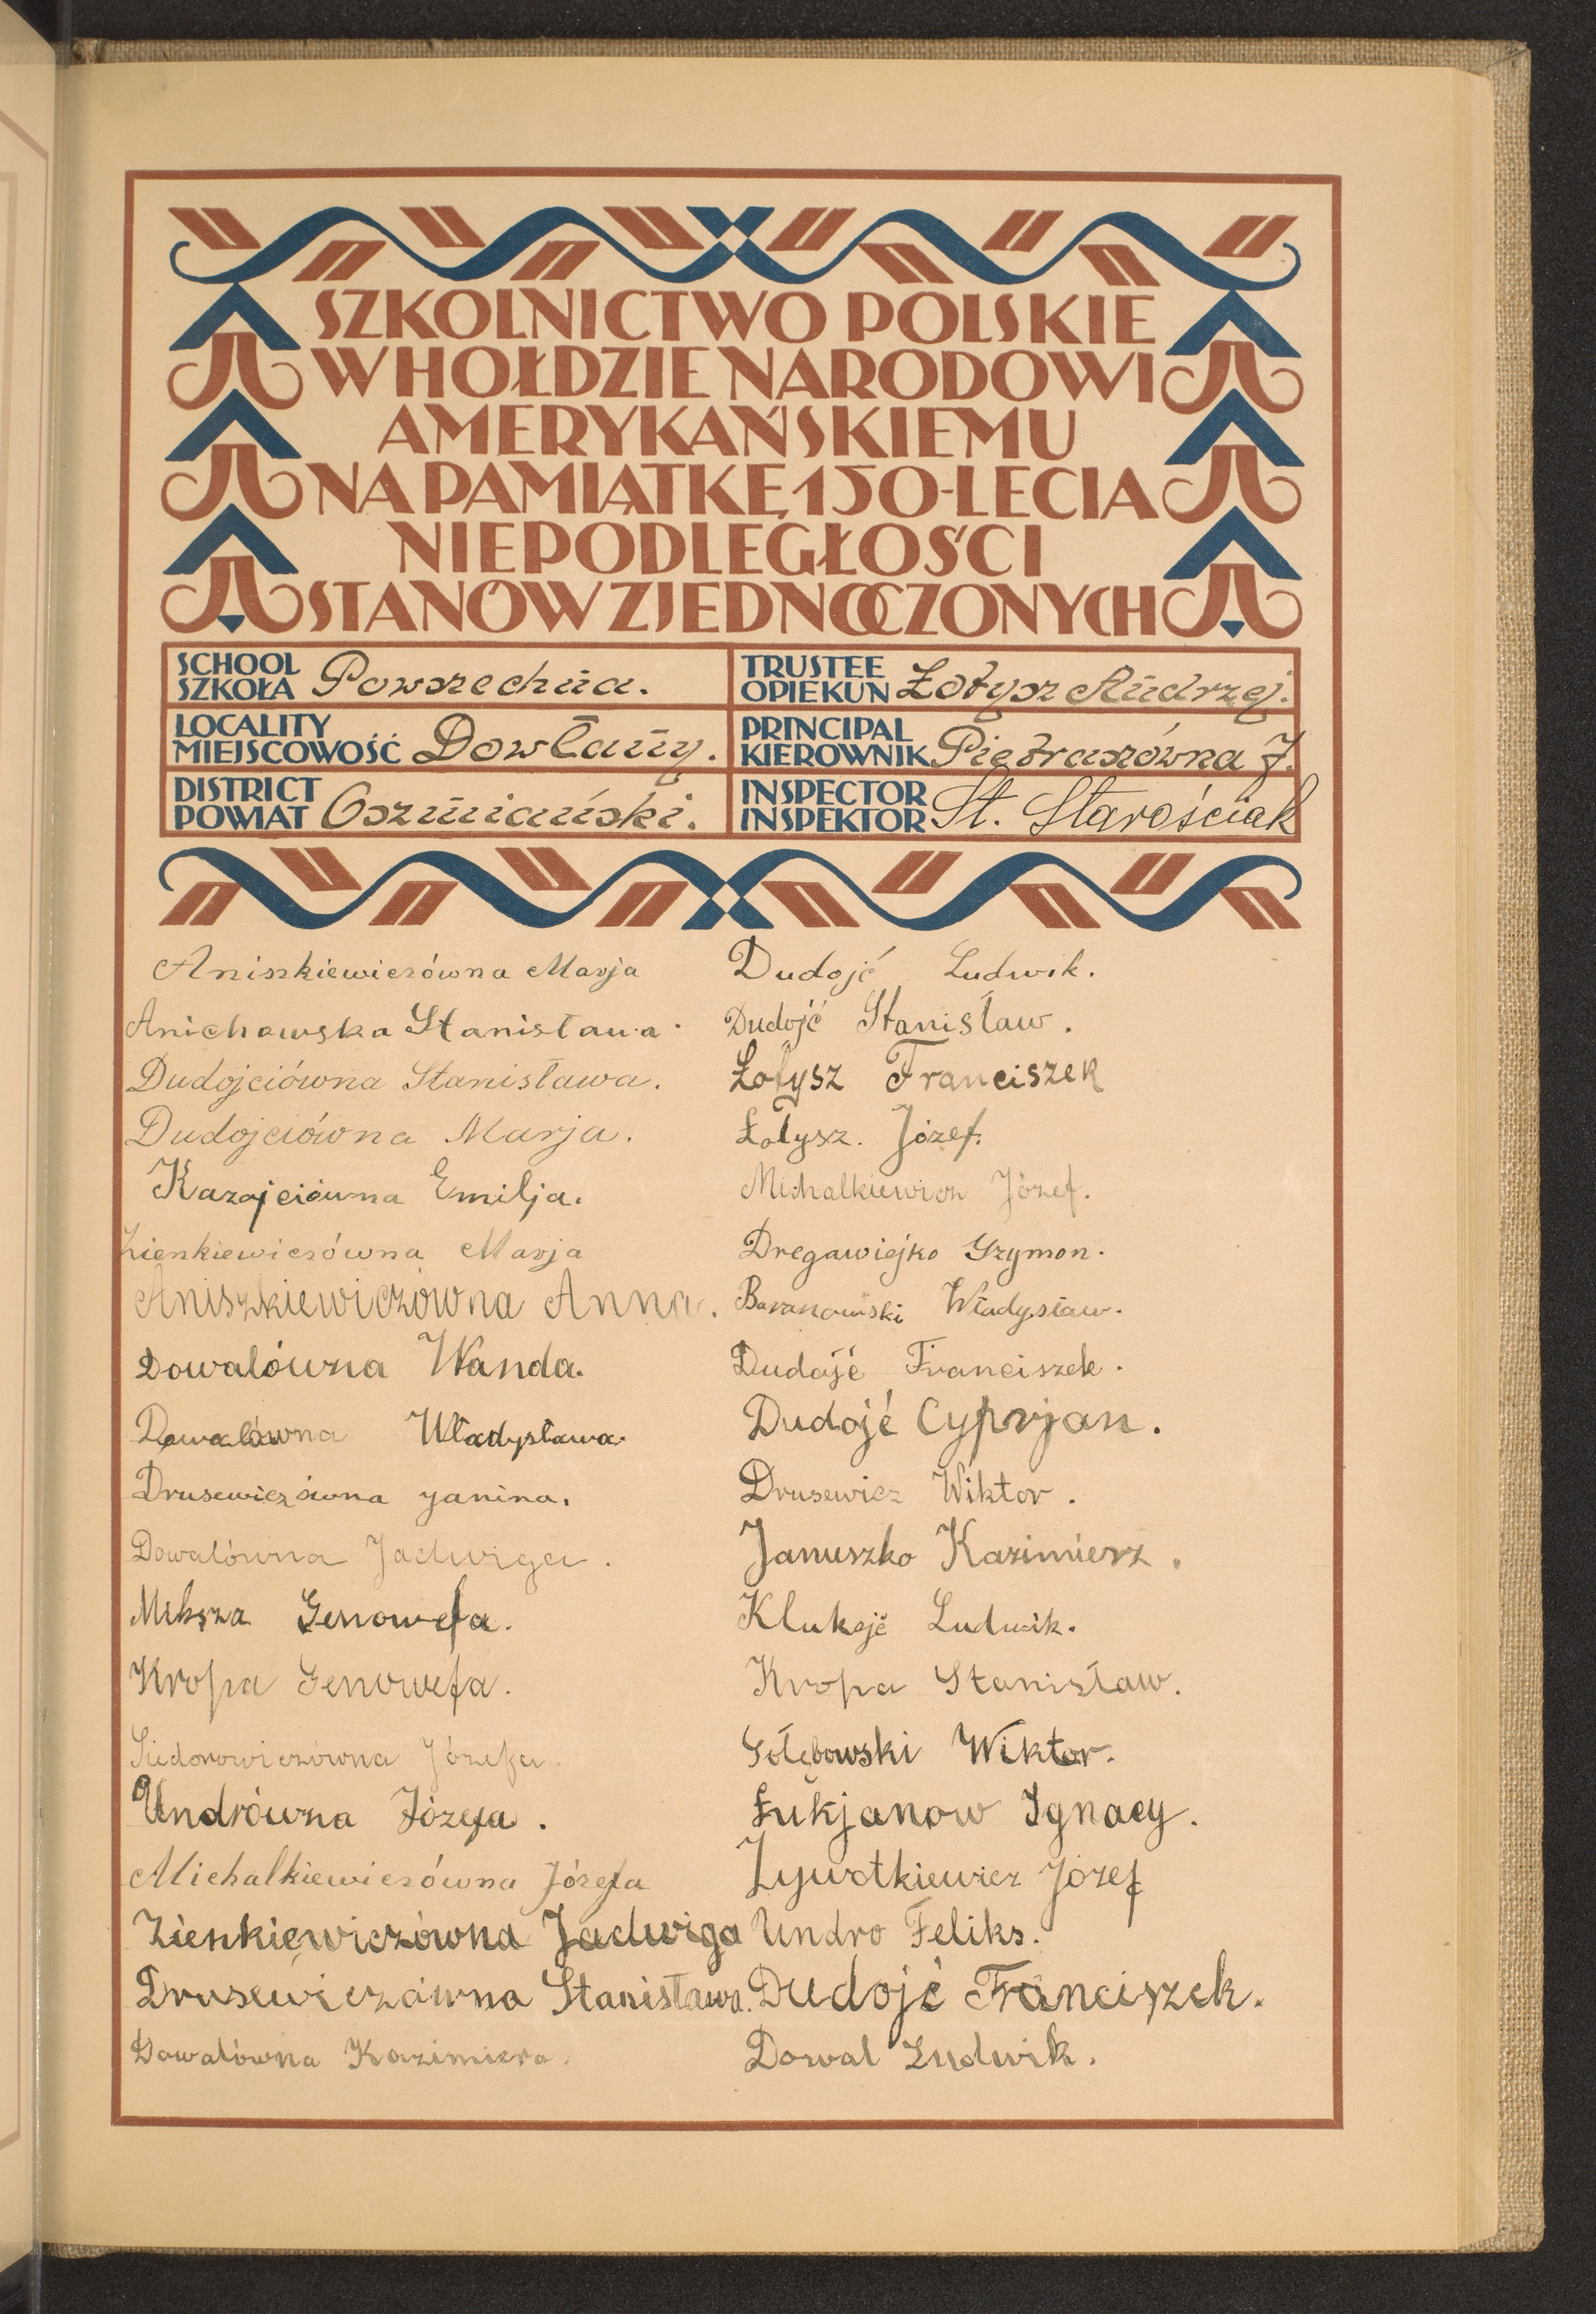 SZKOLNICTWO POLSKIE
W HOŁDZIE NARODOWI
AMERYKAŃSKIEMU
NA PAMIĄTKĘ 150-LECIA
NIEPODLEGŁOŚCI
STANÓW ZJEDNOCZONYCH
SCHOOL
SZKOŁA Powszechna.
LOCALITY
MIEJSCOWOŚĆ Dowlany.
DISTRICT
POWIAT Oszmiański.
TRUSTEE
OPIEKUN Łotysz Andrzej.
PRINCIPAL
KIEROWNIK Pietraszówna J.
INSPECTOR
INSPEKTOR St. Starościak
Aniszkiewiczówna Marja
Anichowska Stanisława.
Dudojciówna Stanisława.
Dudojciówna Marja.
Kazojciówna Emilja.
Zienkiewiczówna Marja
Aniszkiewiczówna Anna.
Dowalówna Wanda.
Dowalówna Władysława.
Drusewiczówna Janina.
Dowalówna Jadwiga.
Miksza Genowefa.
Kropa Genowefa.
Siedorowiczówna Józefa.
Undrówna Józefa.
Michalkiewiczówna Józefa
Zienkiewiczówna Jadwiga
Drusewiczówna Stanisława.
Dowalówna Kazimiera.
Dudojć Ludwik.
Dudojć Stanisław.
Łotysz Franciszek
Łotysz. Józef.
Michalkiewicz Józef.
Dregawiejko Szymon.
Baranowski Władysław.
Dudojć Franciszek.
Dudojć Cyprjan.
Drusewicz Wiktor.
Januszko Kazimierz.
Klukojć Ludwik.
Kropa Stanisław.
Gołębowski Wiktor.
Łukjanow Ignacy.
Żywotkiewicz Józef
Undro Feliks.
Dudojć Franciszek.
Dowal Ludwik.